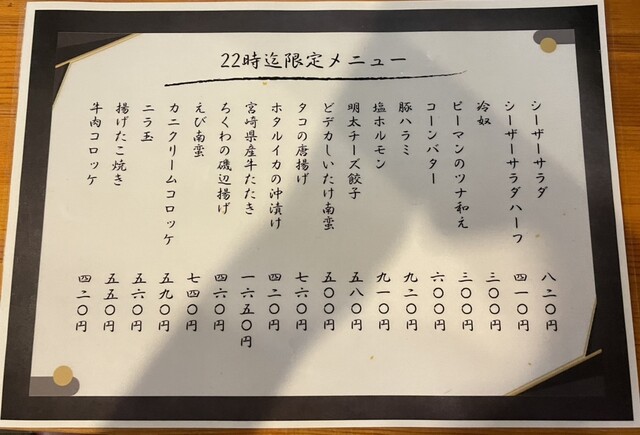 22時迄限定メニュー
シーザーサラダ 八二〇円
シーザーサラダハーフ 四一〇円
冷奴 三〇〇円
ピーマンのツナ和え 三〇〇円
コーンバター 六〇〇円
豚ハラミ 九二〇円
塩ホルモン 九一〇円
明太チーズ餃子 五八〇円
どデカしいたけ南蛮 五〇〇円
タコの唐揚げ 七六〇円
ホタルイカの沖漬け 四二〇円
宮崎県産牛たたき 一六五〇円
ちくわの磯辺揚げ 四六〇円
えび南蛮 七四〇円
カニクリームコロッケ 五九〇円
ニラ玉 五六〇円
揚げたこ焼き 五五〇円
牛肉コロッケ 四二〇円